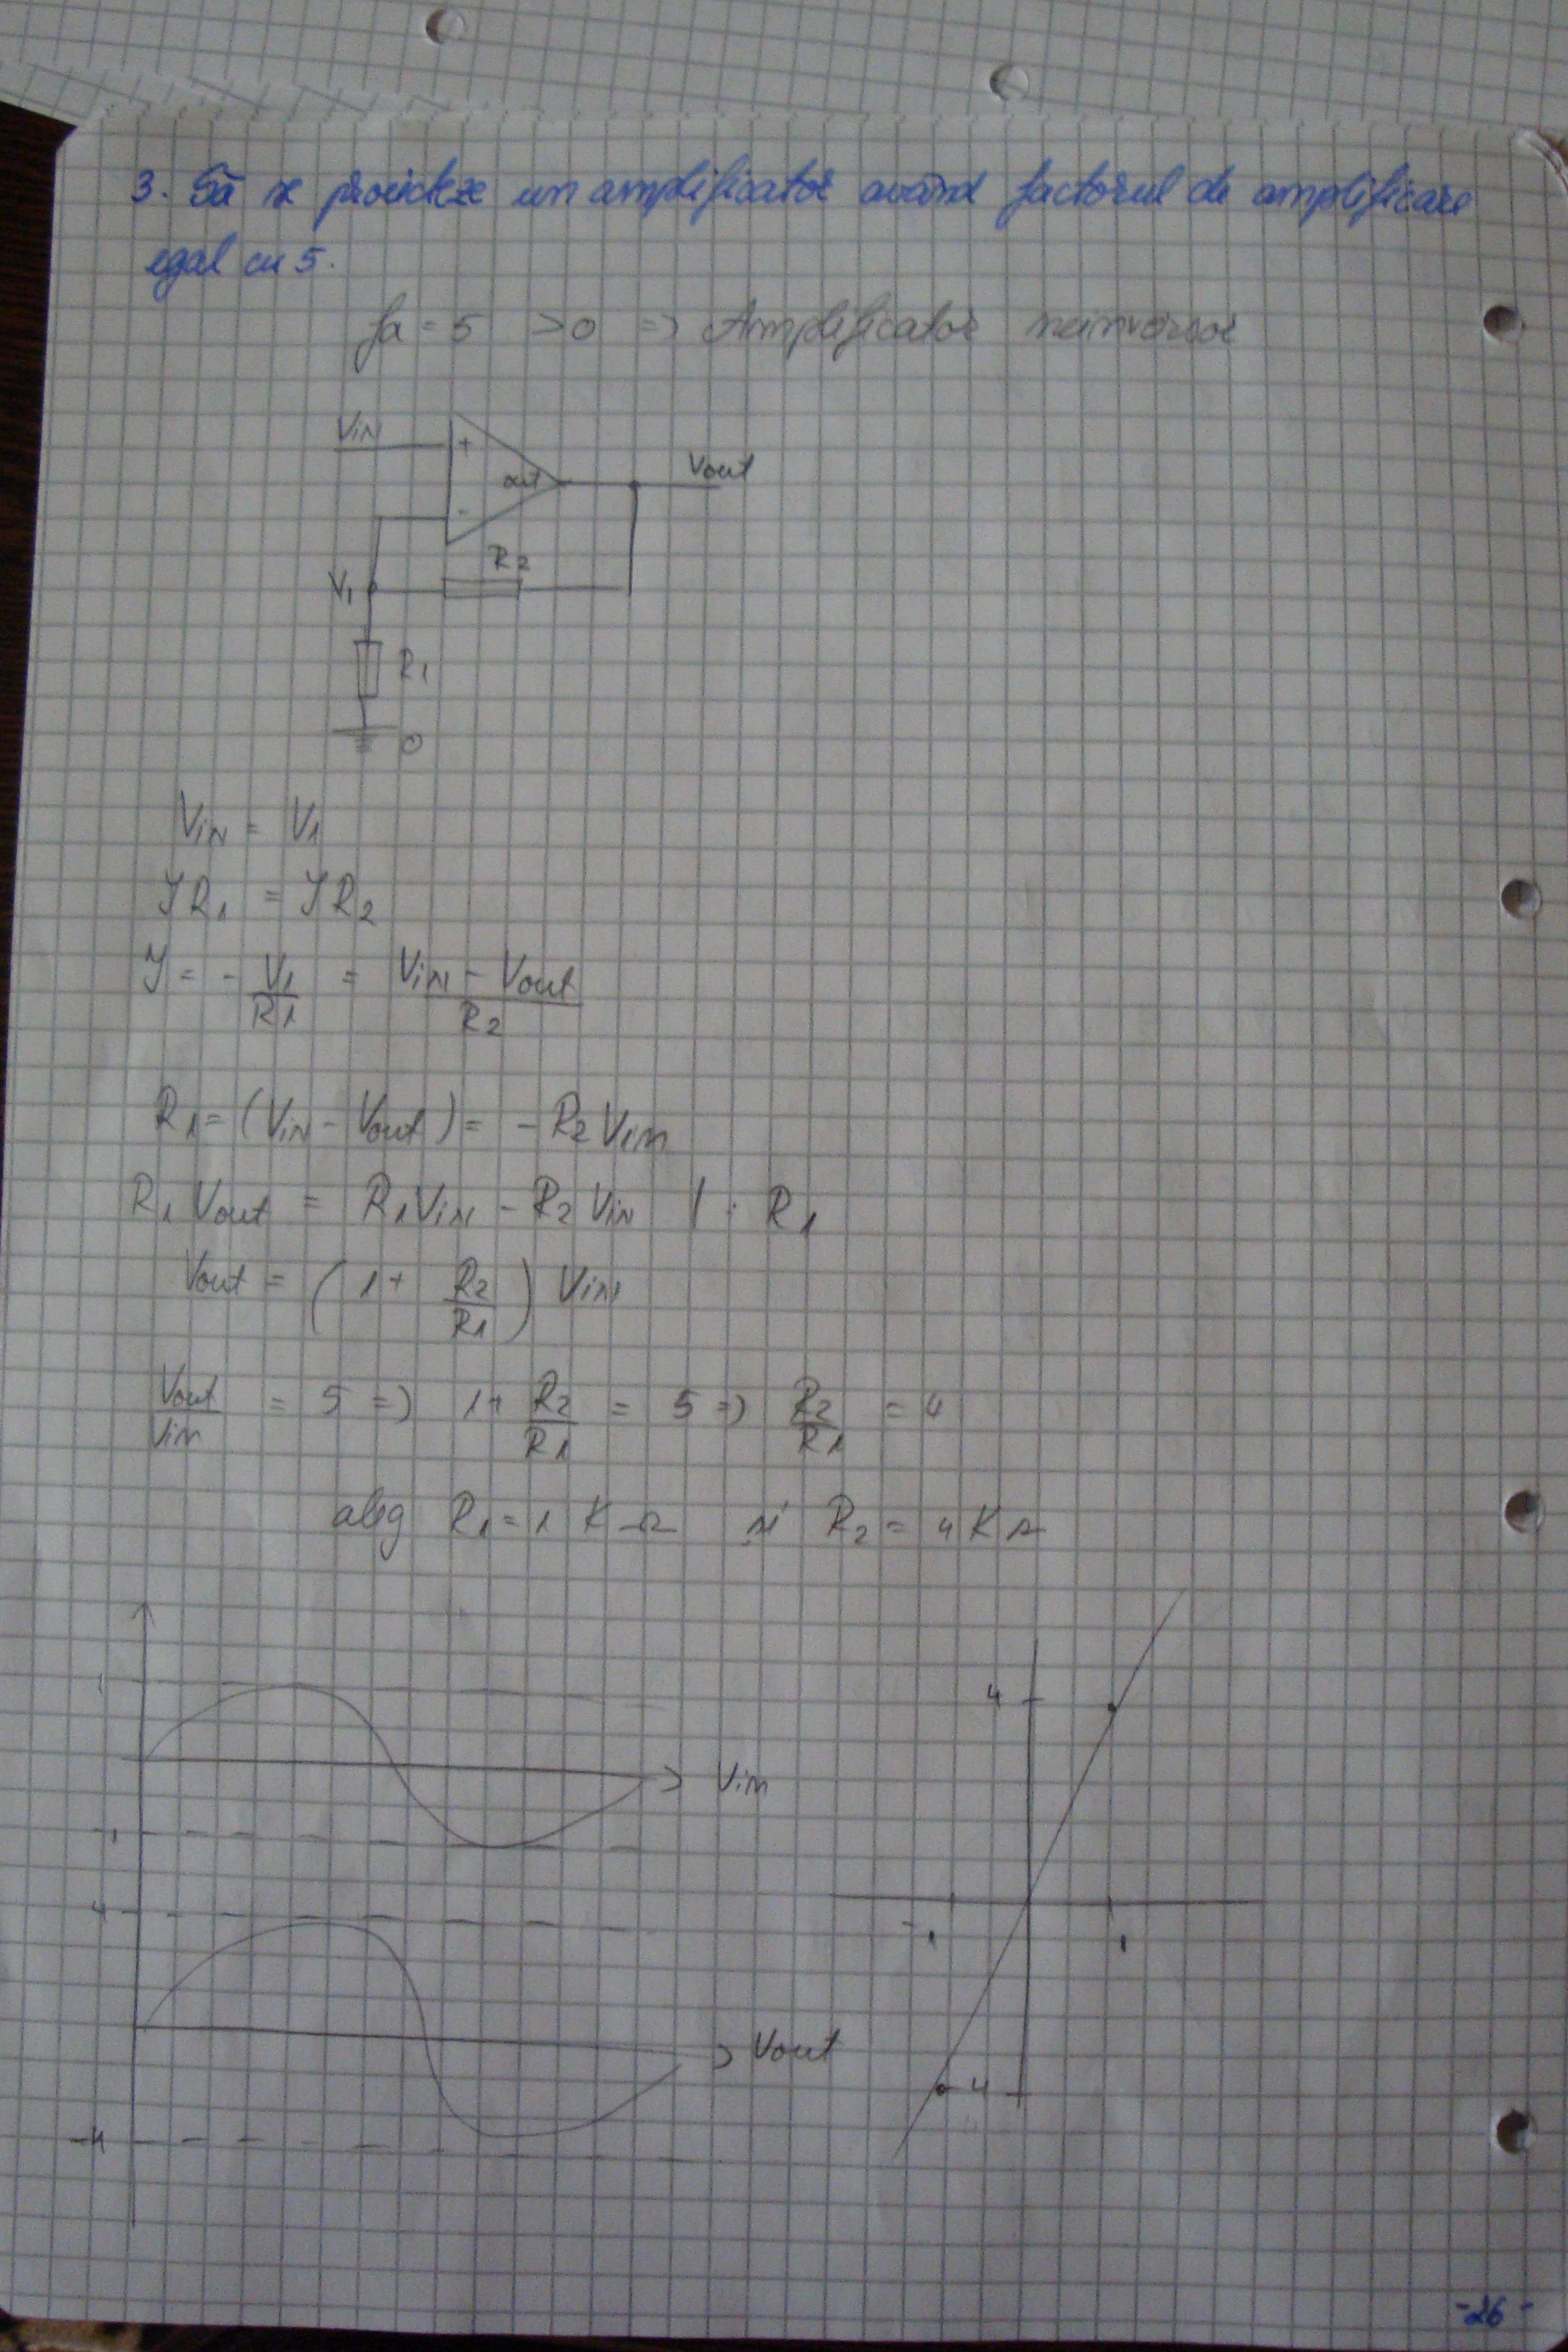 3. Să se proiecteze un amplificator având factorul de amplificare
egal cu 5.
fa = 5 > 0 => Amplificator neinversor
Vin
+
out
Vout
-
R2
V1
R1
0
Vin = V1
IR1 = IR2
I = - V1/R1 = Vin - Vout/R2
R1 = (Vin - Vout) = - R2 Vin
R1 Vout = R1 Vin - R2 Vin | : R1
Vout = (1 + R2/R1) Vin
Vout/Vin = 5 => 1 + R2/R1 = 5 => R2/R1 = 4
aleg R1 = 1 KΩ si R2 = 4 KΩ
1
Vin
-1
4
Vout
-4
4
-1
1
-4
-26-